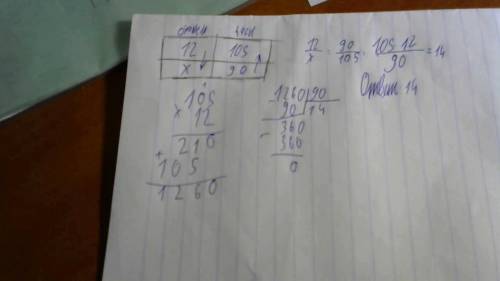 12 105
x 90
12/x = 90/105 = 105 12/90 = 14
Ответ 14
105
× 12
210
+ 105
1260
1260 90
90 14
- 360
360
0